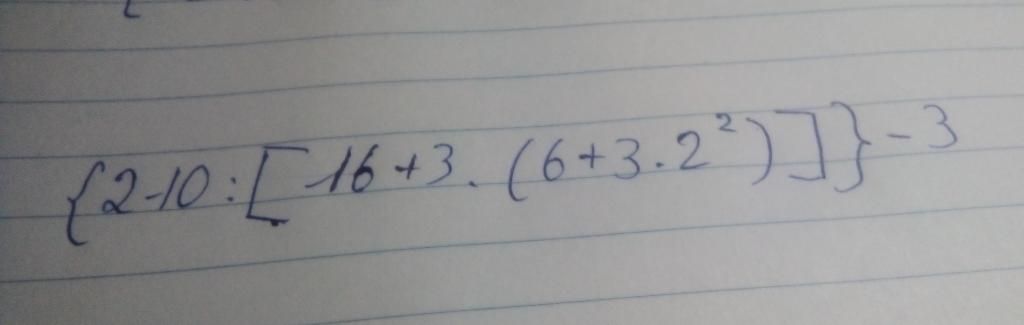 {2-10:[-16+3.(6+3.2²)]}-3